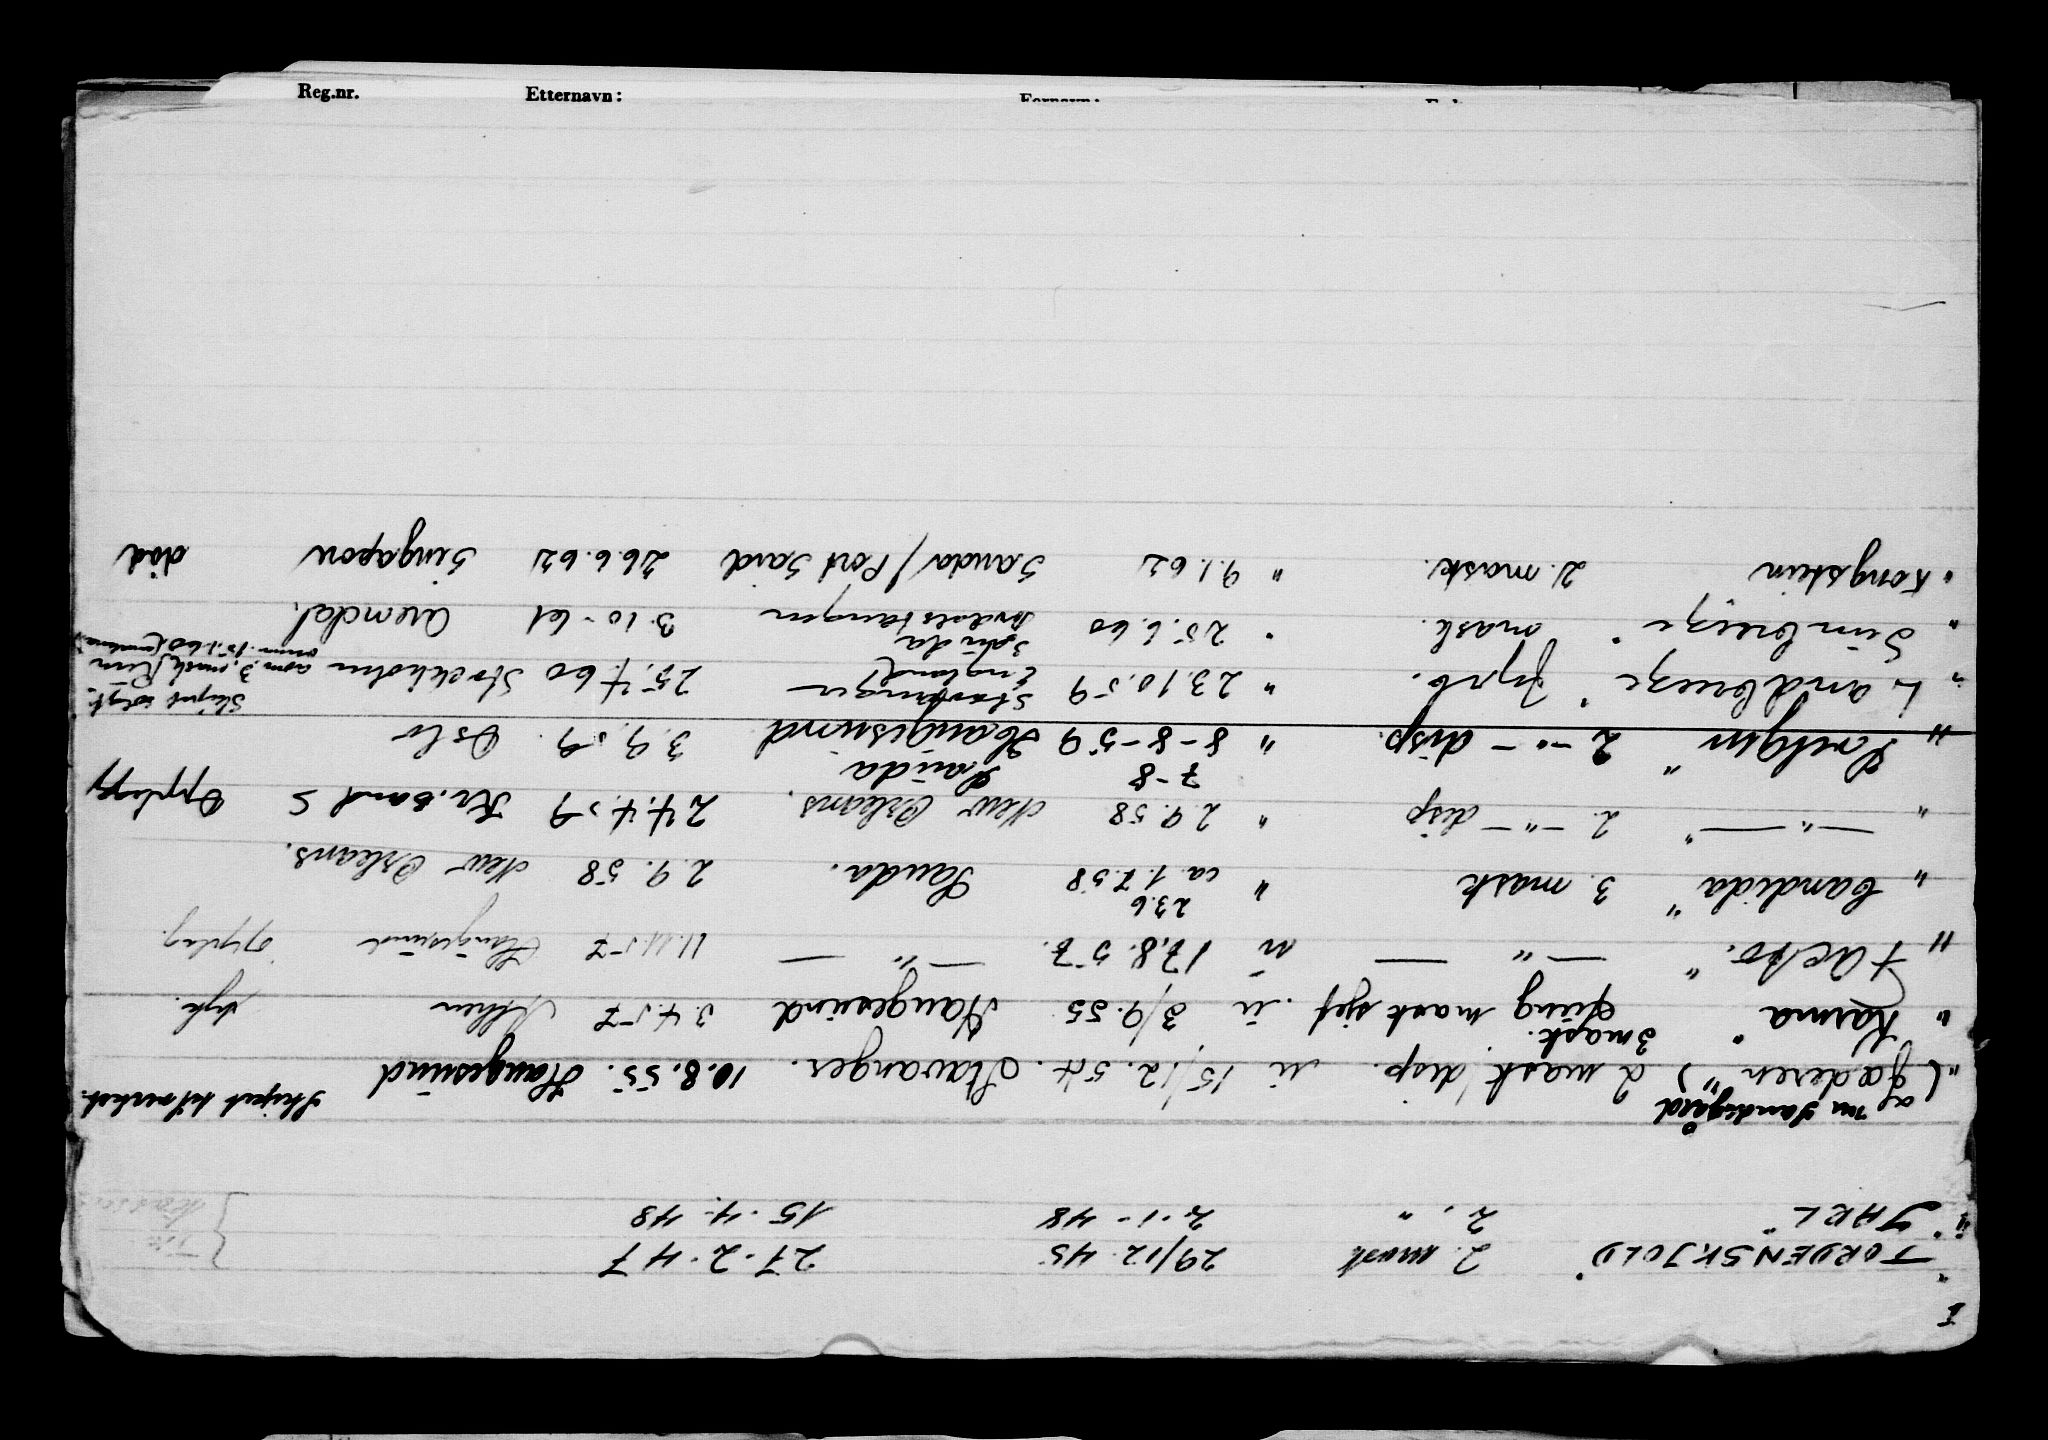 Reg.nr. Etternavn:
I
" TORDENSKJOLD" 2. mask 29/12.45 27-2-47
" JARL" 2. " 2.1-48 15.4.48
af "m Sandsgård
"(Jæderen") 2 mask/disp. u 15/12.54. Stavanger. 10.8.55. Haugesund Skipet
3 mask.
" Karma" fung mask sjef u. 3/9.55 Haugesund 3.4.57 syk.
" —"— u 17.8.57. —"— 11.11.57 Haugesund opplag.
23.6
" Candida" 3. mask " ca 1.7.58 Sauda. 2.9.58 New Orleans.
" —"—" 2. —"— disp " 2.9.58 New Orleans. 24.4.59 Kr.sand S Opplegg
7-8 Sauda
" 2 —"— disp. " 8-8-59 Haugesund 3.9.59. Oslo
" Landbreeze" fyrb. " 23.10.59 Stavanger England 25.4.60 Stockholm som 3. mask Skipet solgt.
" Sunbreeze" mask. " 25.6.60 Sauda 3.10-61 Arendal.
" Kongstein 2. mask. " 9.1.62 Sauda/Port Said 26.6.62 Singapou død